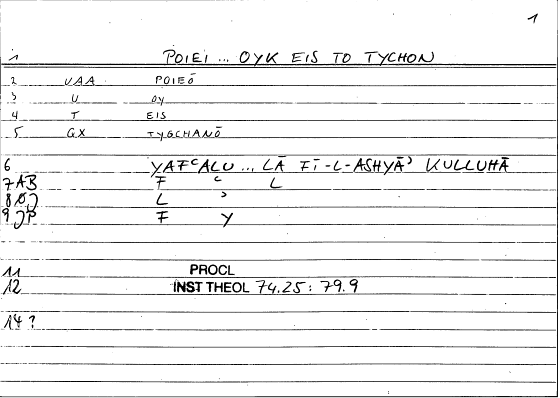 1
1 POIEI ... OYK EIS TO TYCHON
2 VAA POIEŌ
3 U OY
4 T EIS
5 GX TYGCHANŌ
6 YAFʿALU ... LĀ FĪ-L-ASHYĀʾ KULLUHĀ
7 AB F ʿ L
8 L ʾ
9 JP F Y
11 PROCL
12 INST THEOL 74.25 : 79.9
14 ?